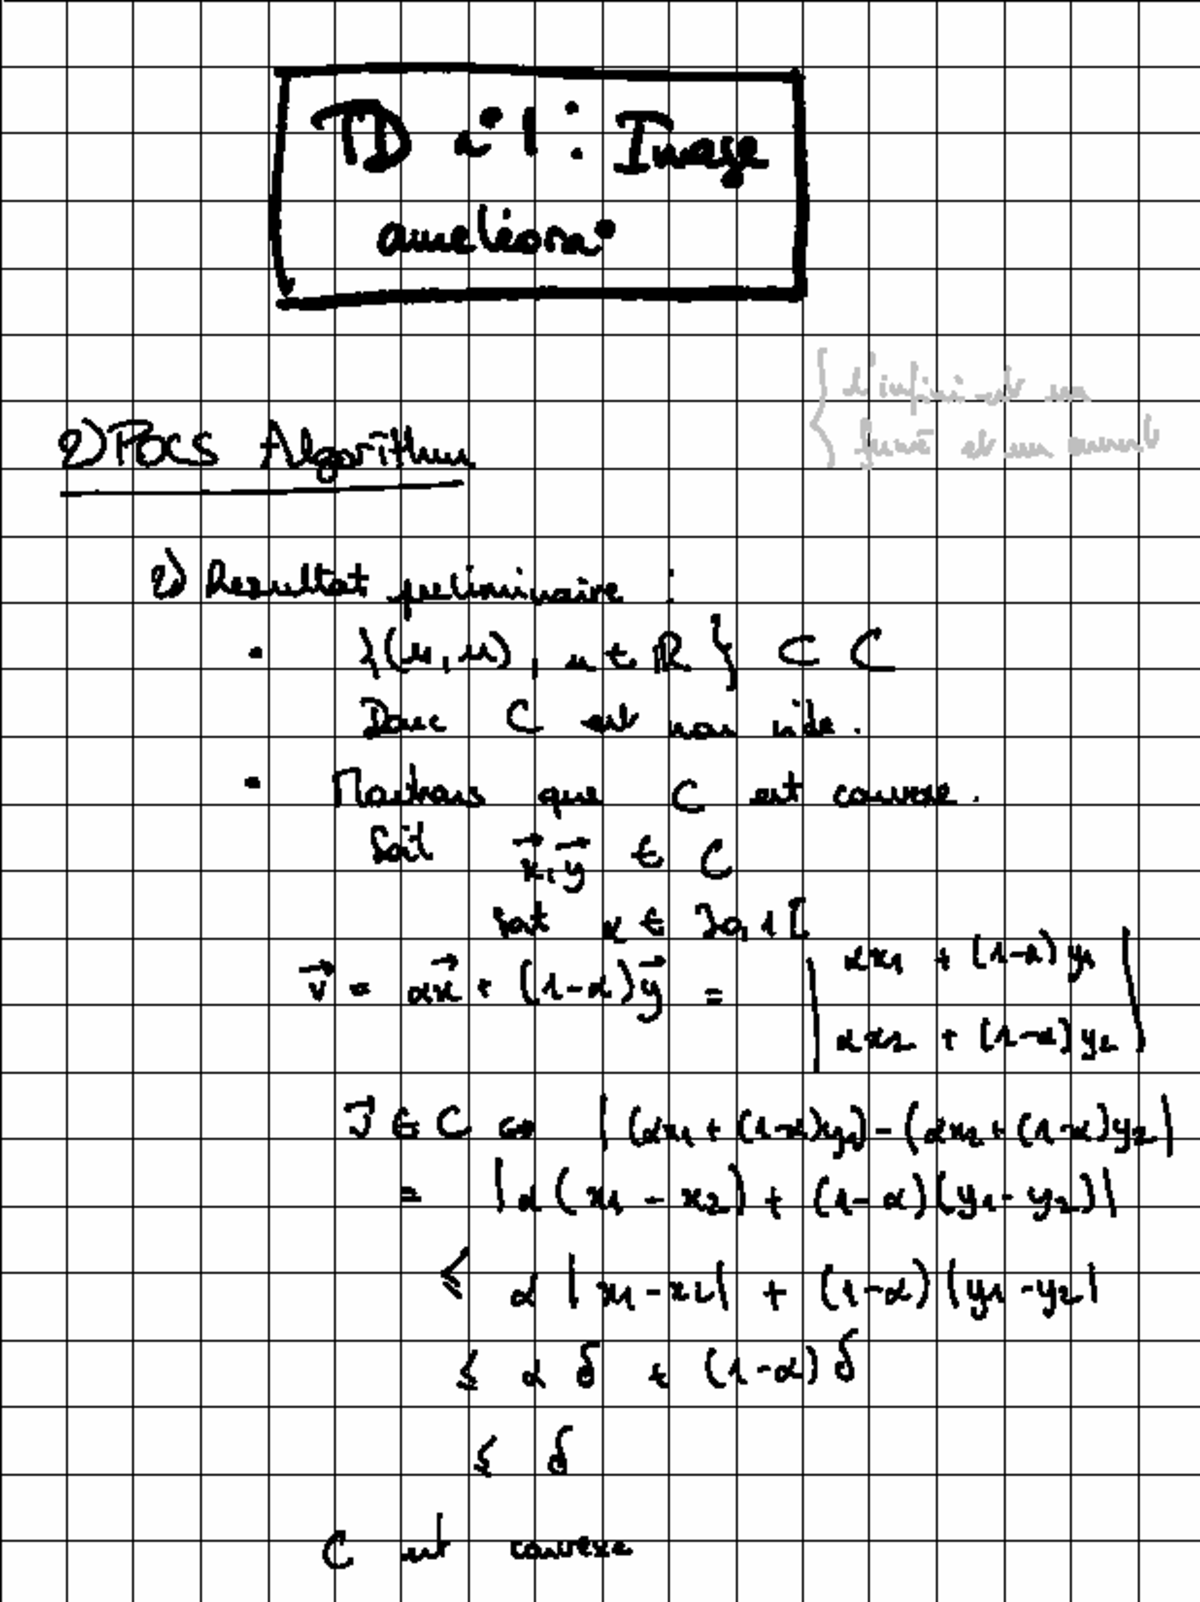 TD n°1 : Image
améliora°
{ l'infini est un
fermé et un ouvert
2) POCS Algorithm
2) Resultat preliminaire :
• {(u,u), u ∈ ℝ } ⊂ C
Donc C est non vide.
• Montrons que C est convexe.
Soit x⃗, y⃗ ∈ C
soit α ∈ ]0,1[
v⃗ = αx⃗ + (1-α)y⃗ = | αx₁ + (1-α)y₁ |
| αx₂ + (1-α)y₂ |
v⃗ ∈ C ⇔ | (αx₁ + (1-α)y₁) - (αx₂ + (1-α)y₂ |
= | α(x₁ - x₂) + (1-α)(y₁- y₂) |
≤ α |x₁ - x₂| + (1-α) |y₁ - y₂|
≤ α δ + (1-α) δ
≤ δ
C est convexe